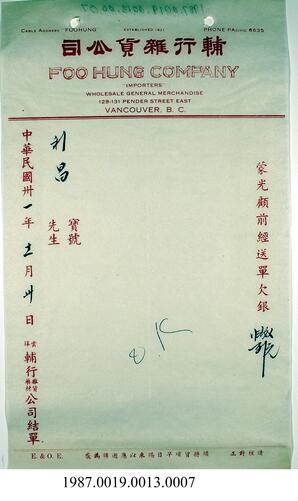 CABLE ADDRESS FOOHUNG
ESTABLISHED 1921
PHONE PACIFIC 6635
司公貨雜行輔
FOO HUNG COMPANY
IMPORTERS
WHOLESALE GENERAL MERCHANDISE
129-131 PENDER STREET EAST
VANCOUVER, B. C.
蒙光顧前經送單欠銀
利昌
寶號
先生
O.K
中華民國卅一年十二月卅日
雲埠輔行雜貨藥材公司結單
E. & O. E.
請祖對正
1987.0019.0013.0007